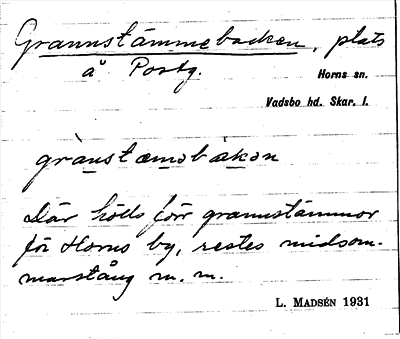 Grannstämmebacken, plats
å Postg.
Horns sn.
Vadsbo hd. Skar. l.
grànstæmǝbàkǝn
Där hölls förr grannstämmor
för Horns by, restes midsom-
marstång m. m.
L. MADSÉN 1931